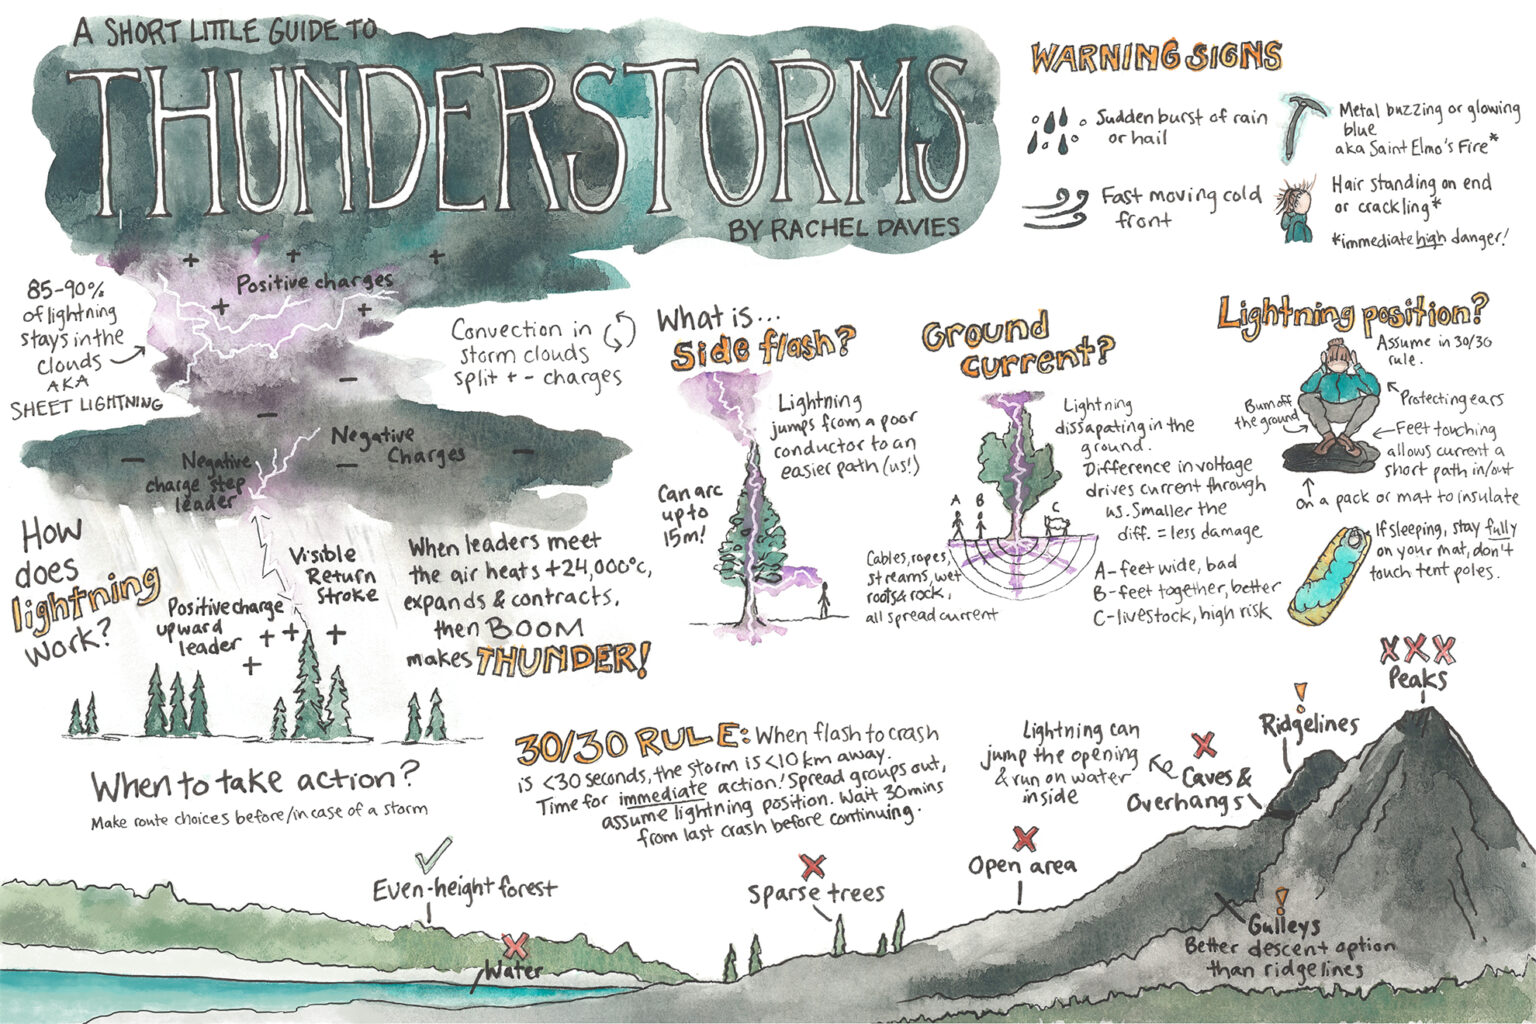 A SHORT LITTLE GUIDE TO
THUNDERSTORMS
BY RACHEL DAVIES
WARNING SIGNS
Sudden burst of rain
or hail
Fast moving cold
front
Metal buzzing or glowing
blue
aka Saint Elmo's Fire*
Hair standing on end
or crackling*
*immediate high danger!
85-90%
of lightning
stays in the
clouds
AKA
SHEET LIGHTNING
+ + +
Positive charges
+ +
Convection in
storm clouds
split + - charges
-
-
Negative
Charges
- - -
Negative
charge step
leader
How
does
lightning
work?
Visible
Return
Stroke
Positive charge
upward
leader
+ + +
+
When leaders meet
the air heats +24,000°c,
expands & contracts,
then BOOM
makes THUNDER!
What is...
Side flash?
Lightning
jumps from a poor
conductor to an
easier path (us!)
Can arc
up to
15m!
Ground
current?
Lightning
dissapating in the
ground.
Difference in voltage
drives current through
us. Smaller the
diff. = less damage
A B C
Cables, ropes,
streams, wet
roots & rock,
all spread current
A-feet wide, bad
B-feet together, better
C-livestock, high risk
Lightning position?
Assume in 30/30
rule.
Bum off
the ground
Protecting ears
Feet touching
allows current a
short path in/out
on a pack or mat to insulate
If sleeping, stay fully
on your mat, don't
touch tent poles.
When to take action?
Make route choices before/in case of a storm
30/30 RULE: When flash to crash
is <30 seconds, the storm is <10 km away.
Time for immediate action! Spread groups out,
assume lightning position. Wait 30 mins
from last crash before continuing.
Lightning can
jump the opening
& run on water
inside
X
Caves &
Overhangs
!
Ridgelines
XXX
Peaks
✓
Even-height forest
X
Water
X
Sparse trees
X
Open area
!
Gulleys
Better descent option
than ridgelines